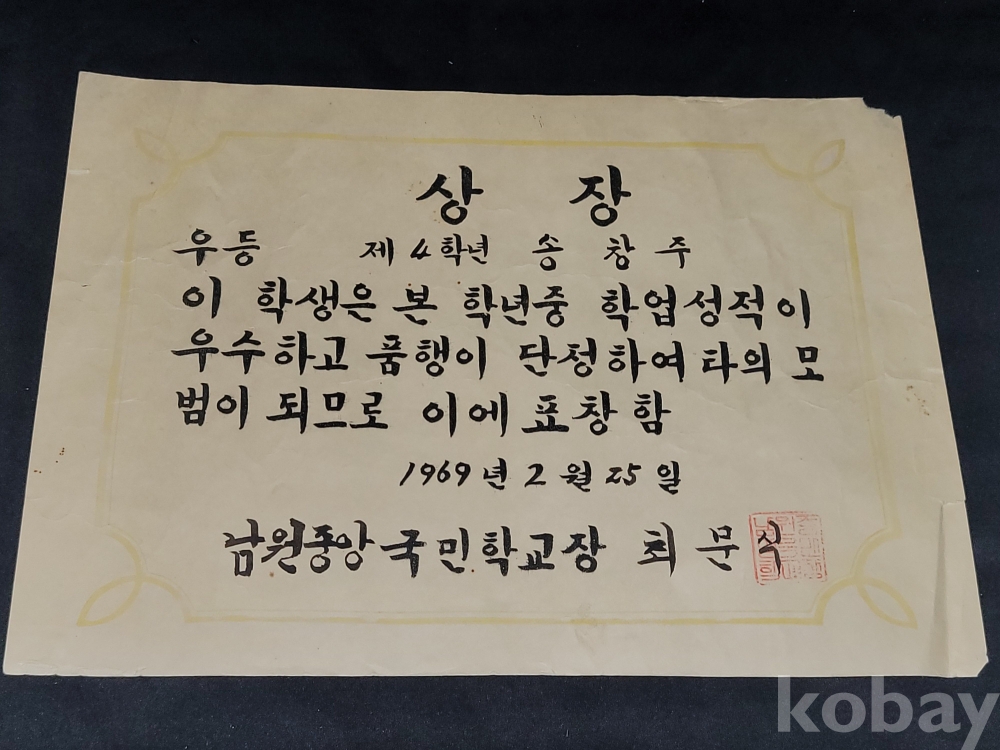 상장
우등 제4학년 송창주
이 학생은 본 학년중 학업성적이
우수하고 품행이 단정하여 타의 모
범이 되므로 이에 표창함
1969년 2월 25일
남원중앙국민학교장 최문식
kobay